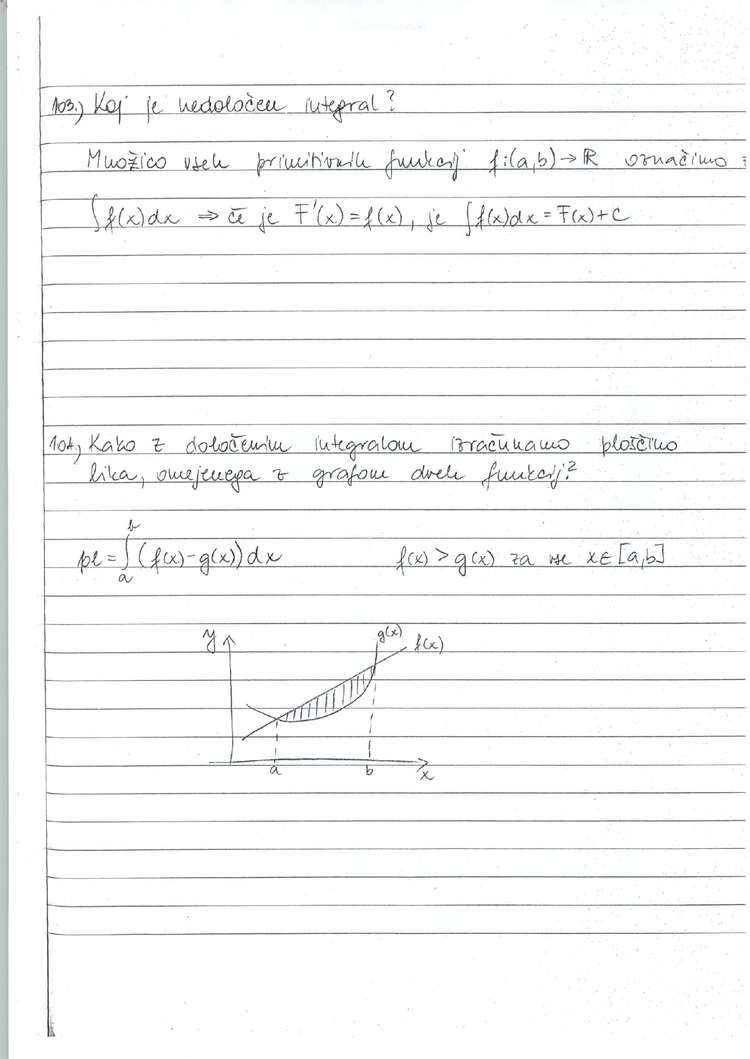 103.) Kaj je nedoločen integral?
Množico vseh primitivnih funkcij f:(a,b)→ℝ označimo z
∫f(x)dx ⇒ če je F'(x)=f(x), je ∫f(x)dx=F(x)+C
104.) Kako z določenim integralom izračunamo ploščino
lika, omejenega z grafom dveh funkcij?
pl=∫_a^b (f(x)-g(x))dx f(x)>g(x) za vse x∈[a,b]
y g(x) f(x)
a b x